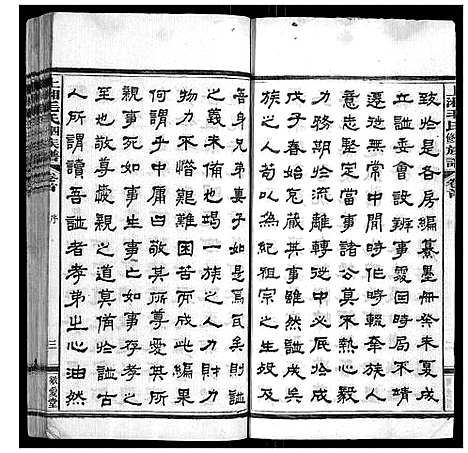 致於是各房編纂墨冊癸未夏成
立譜委會設辦事處
遷徙無定 其時輟 族人
意志堅定當事諸公莫不熱心毅
力務期於流離轉徙
戊子春始克蕆其事 譜成
族之人苟以為紀祖宗之生歿及
吾身兄弟妻子如是焉 矣則譜
之義未備也竭一族之人力財力
物力不惜艱難困苦 編此譜果
何謂乎中庸曰敬其所尊愛其所
親事死如事生事亡如事存孝之
至也尊尊親親之道莫備於譜古
人所謂讀吾譜者孝弟之心油然
上湘毛氏 族譜 卷首 序 三 敬愛堂